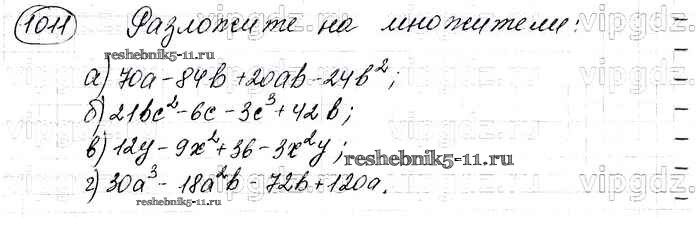 1011 Разложите на множители:
reshebnik5-11.ru
а) 70a - 84b + 20ab - 24b²;
б) 21bc² - 6c - 3c³ + 42b;
в) 12y - 9x² + 36 - 3x²y;
reshebnik5-11.ru
г) 30a³ - 18a²b - 72b + 120a.
reshebnik5-11.ru
vipgdz.ru